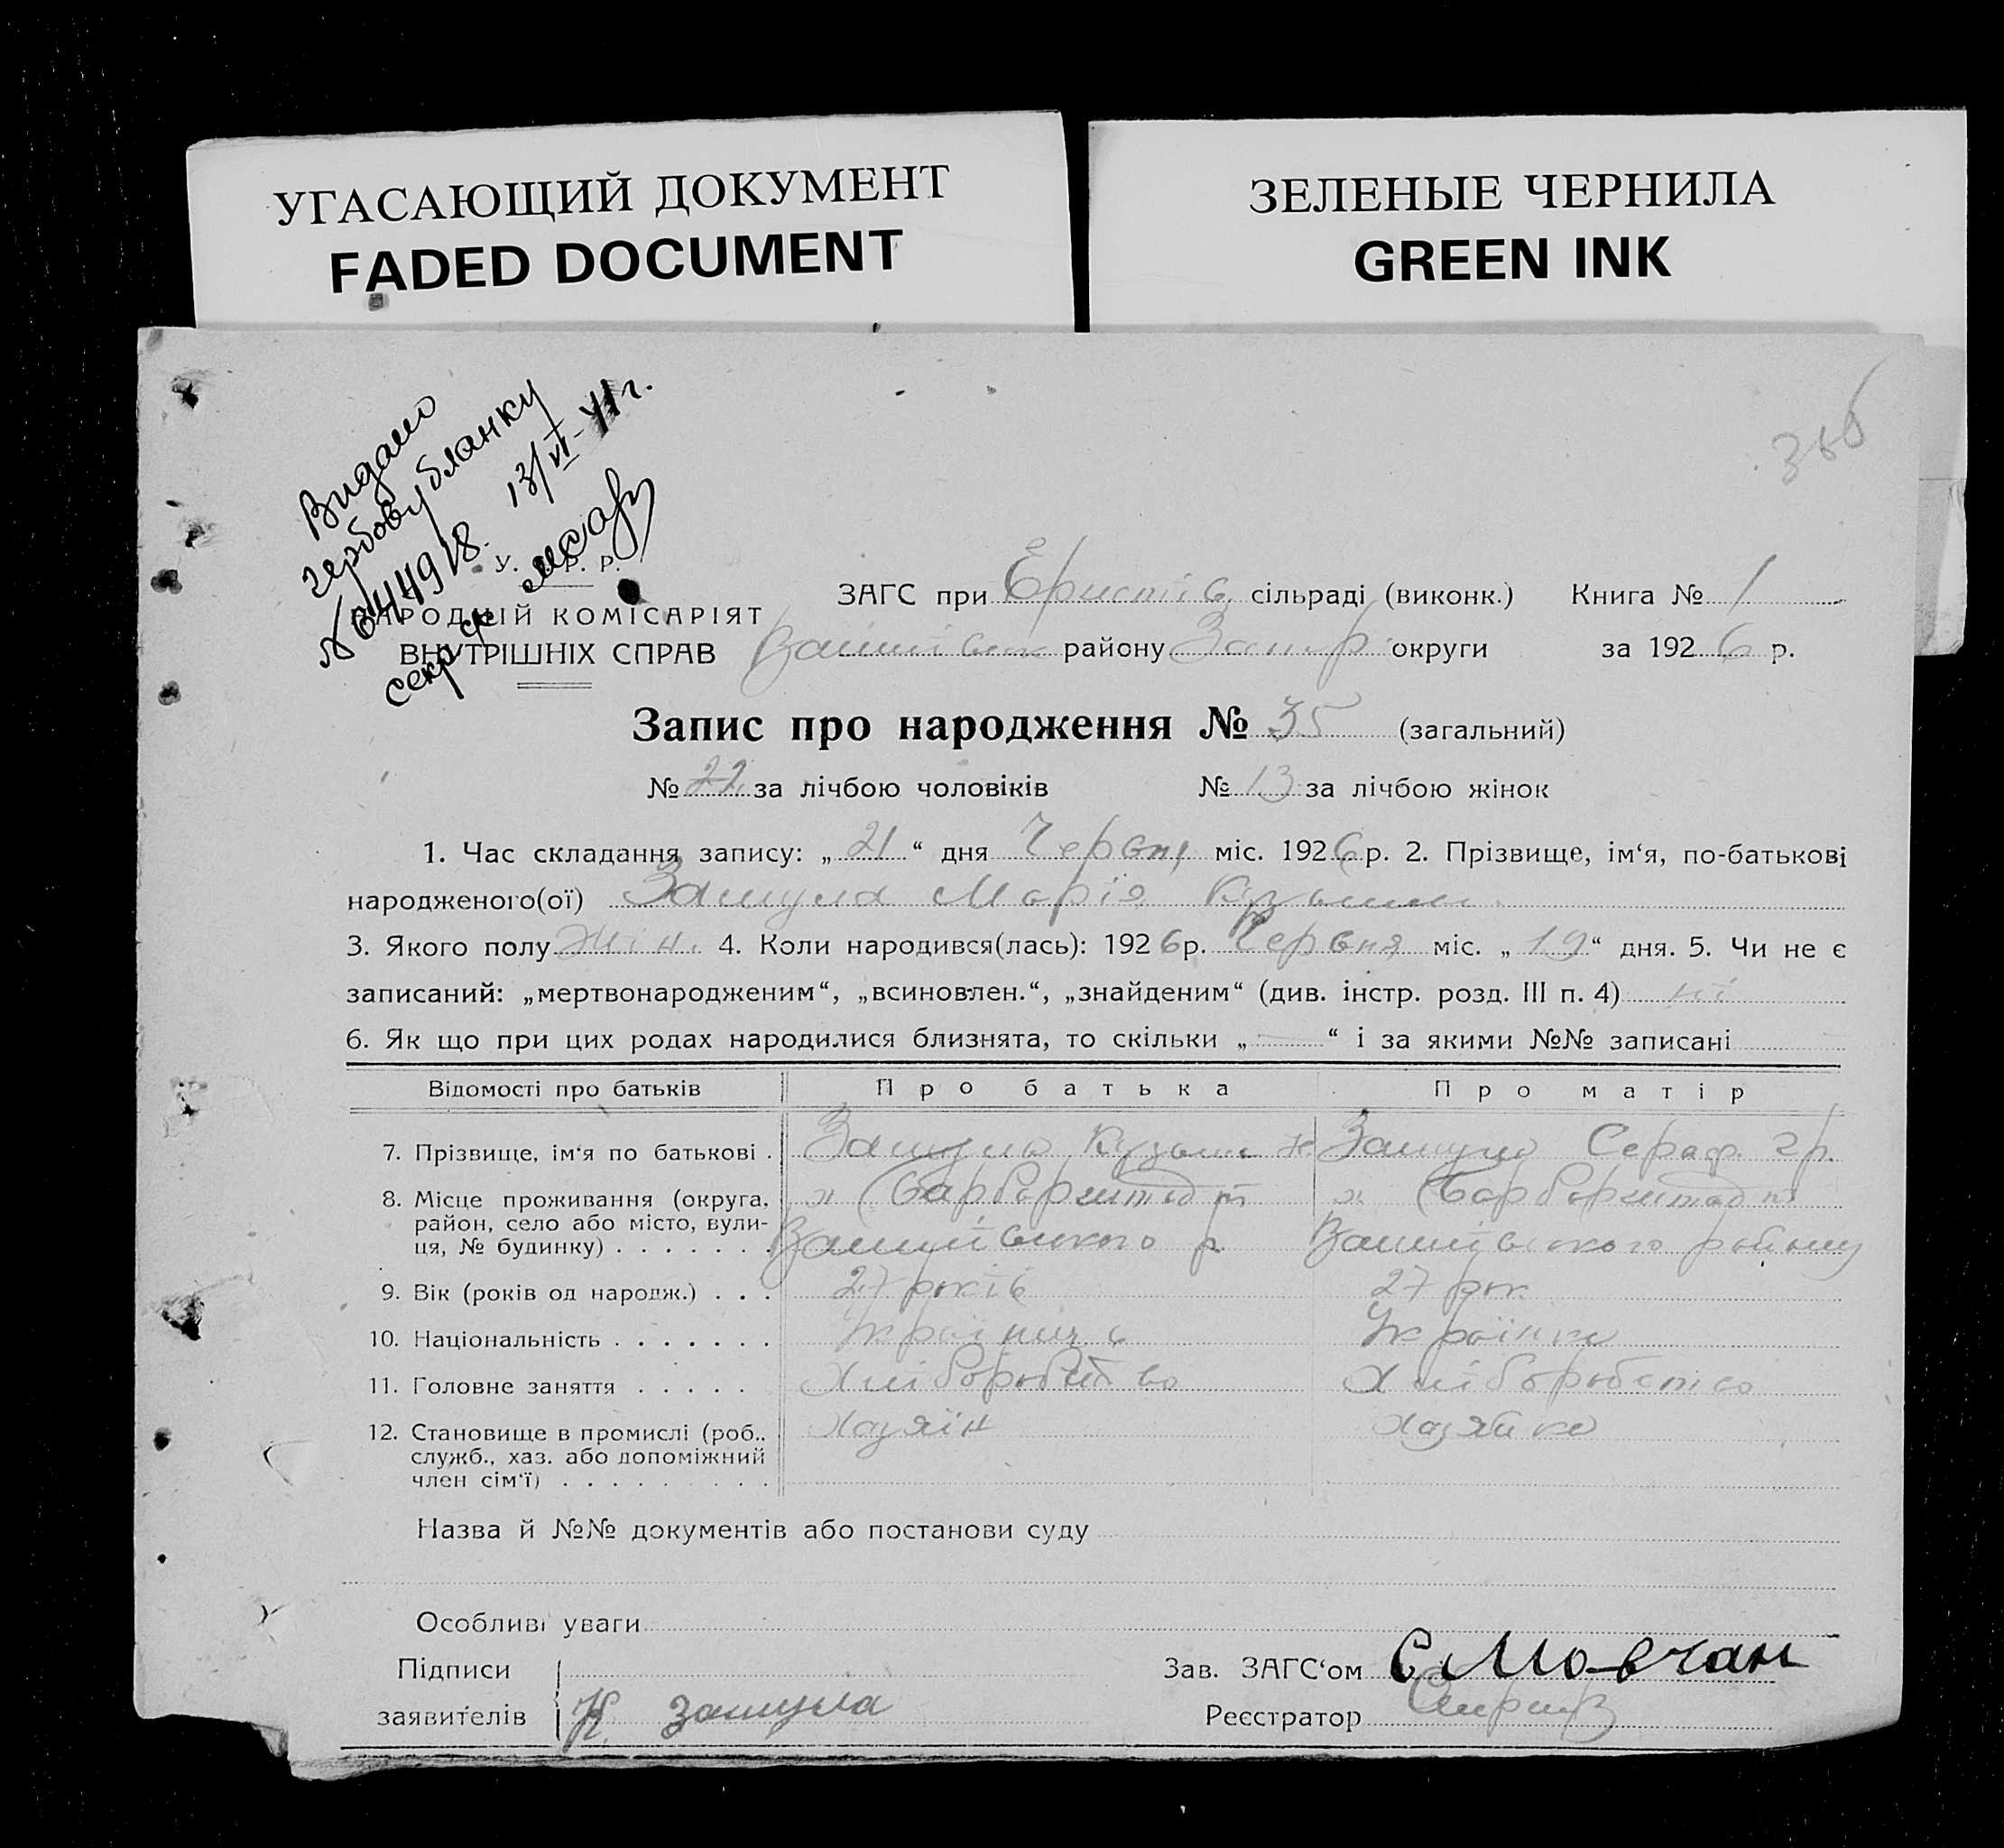 УГАСАЮЩИЙ ДОКУМЕНТ
FADED DOCUMENT
ЗЕЛЕНЫЕ ЧЕРНИЛА
GREEN INK
Видано
гербову бланку
13/VI-41г.
секр
У. Р. Р.
НАРОДНІЙ КОМІСАРІЯТ
ВНУТРІШНІХ СПРАВ
ЗАГС при Еристів. сільраді (виконк.) Книга № 1
району Запор округи за 1926 р.
Запис про народження № 35 (загальний)
№ 22 за лічбою чоловіків № 13 за лічбою жінок
1. Час складання запису: „21“ дня Червня міс. 1926 р. 2. Прізвище, ім‘я, по-батькові
народженого(ої) Зашула Марія Кузьмин.
3. Якого полу жін. 4. Коли народився(лась): 1926 р. Червня міс. „19“ дня. 5. Чи не є
записаний: „мертвонародженим“, „всиновлен.“, „знайденим“ (див. інстр. розд. III п. 4) ні
6. Як що при цих родах народилися близнята, то скільки „—“ і за якими №№ записані
Відомості про батьків Про батька Про матір
7. Прізвище, ім‘я по батькові . Зашула Кузьма Зашула Сераф. Гр.
8. Місце проживання (округа,
район, село або місто, вули-
ця, № будинку) . . . . . . . р районну
9. Вік (років од народж.) . . . 27 років 27 рок
10. Національність . . . . . . . Українець Українка
11. Головне заняття . . . . . Хліборобство Хліборобство
12. Становище в промислі (роб., хазяїн хазяйка
служб., хаз. або допоміжний
член сім‘ї) . . . . . . . . .
Назва й №№ документів або постанови суду
Особливі уваги
Підписи Зав. ЗАГС‘ом С Мовчан
заявителів К. Зашула Реєстратор